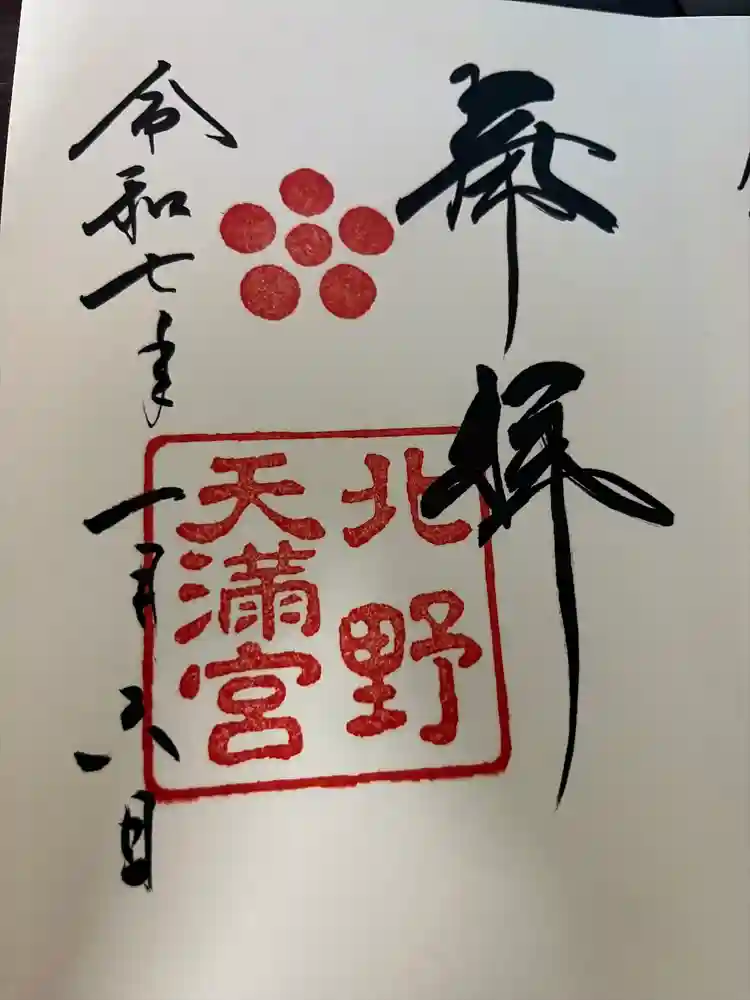 奉拝
北野
天満宮
令和七年一月日